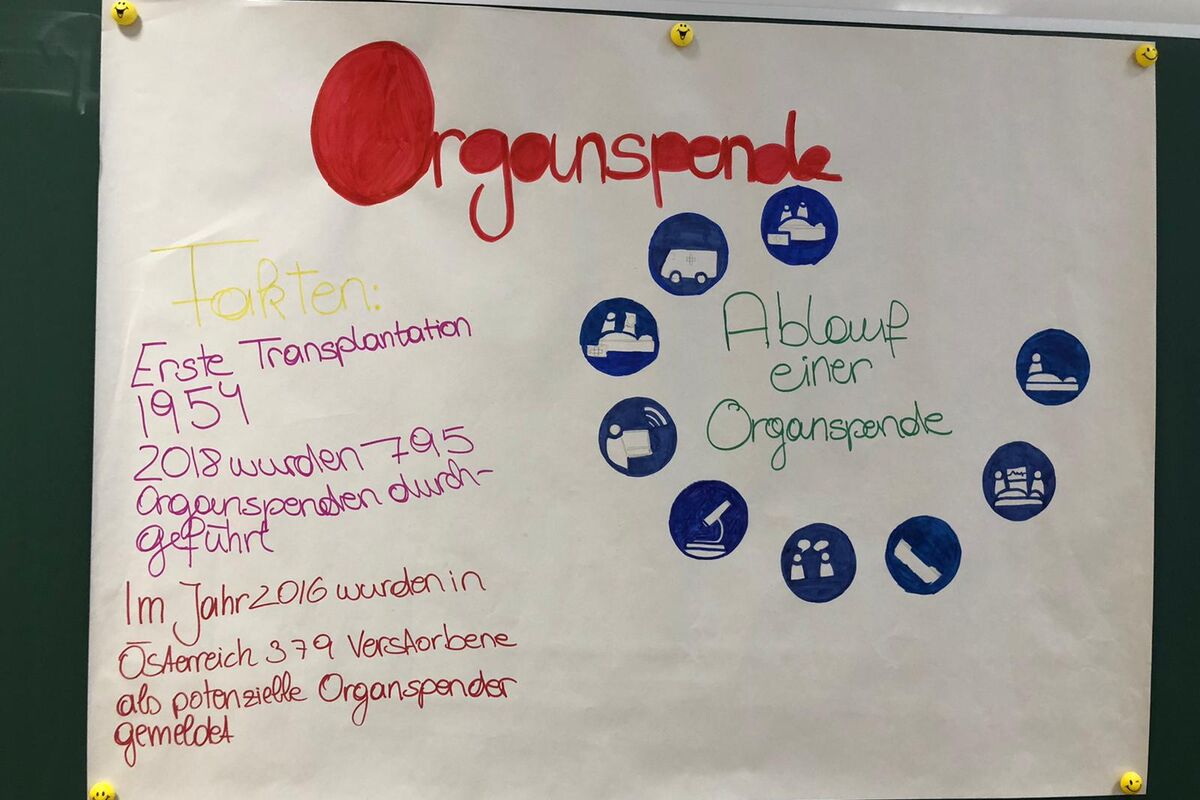 Organspende
Fakten:
Erste Transplantation
1954
2018 wurden 795
Organspenden durch-
geführt
Im Jahr 2016 wurden in
Österreich 379 Verstorbene
als potenzielle Organspender
gemeldet
Ablauf
einer
Organspende